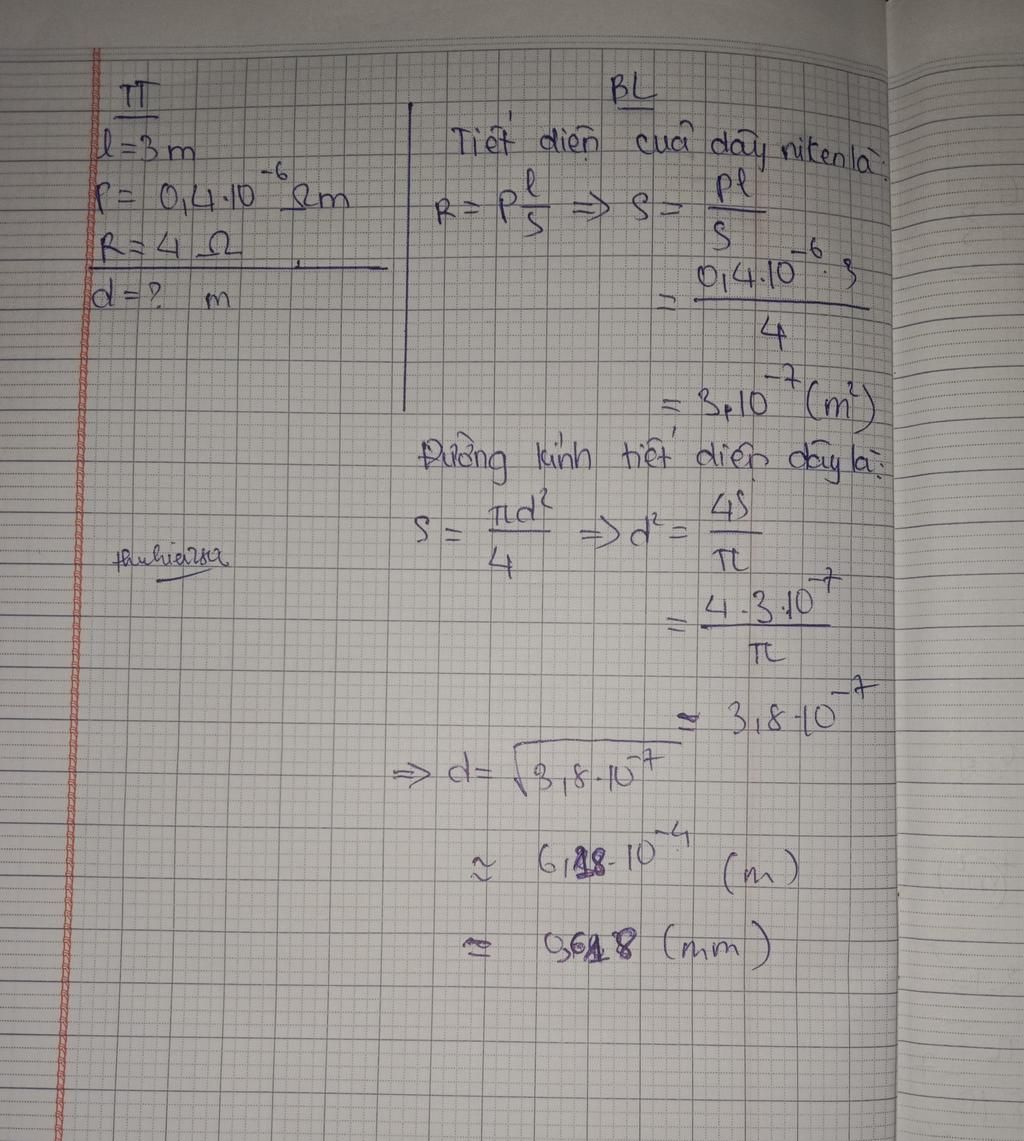 TT
l = 3 m
ρ = 0,4.10⁻⁶ Ωm
R = 4 Ω
d = ? m
BL
Tiết diện của dây niken là:
R = ρ l/S => S = ρl/S
= 0,4.10⁻⁶.3/4
= 3,10⁻⁷ (m²)
Đường kính tiết diện dây là:
S = πd²/4 => d² = 4S/π
= 4.3.10⁻⁷/π
= 3,8.10⁻⁷
=> d = √3,8.10⁻⁷
≈ 6,18.10⁻⁴ (m)
≈ 0,618 (mm)